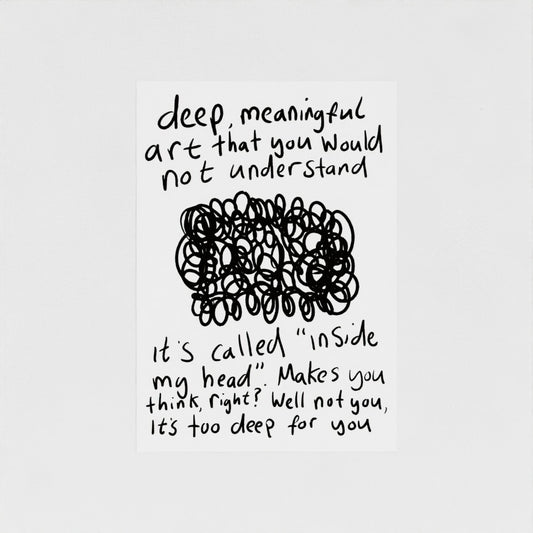 deep, meaningful
art that you would
not understand
it's called "inside
my head". Makes you
think, right? Well not you,
it's too deep for you